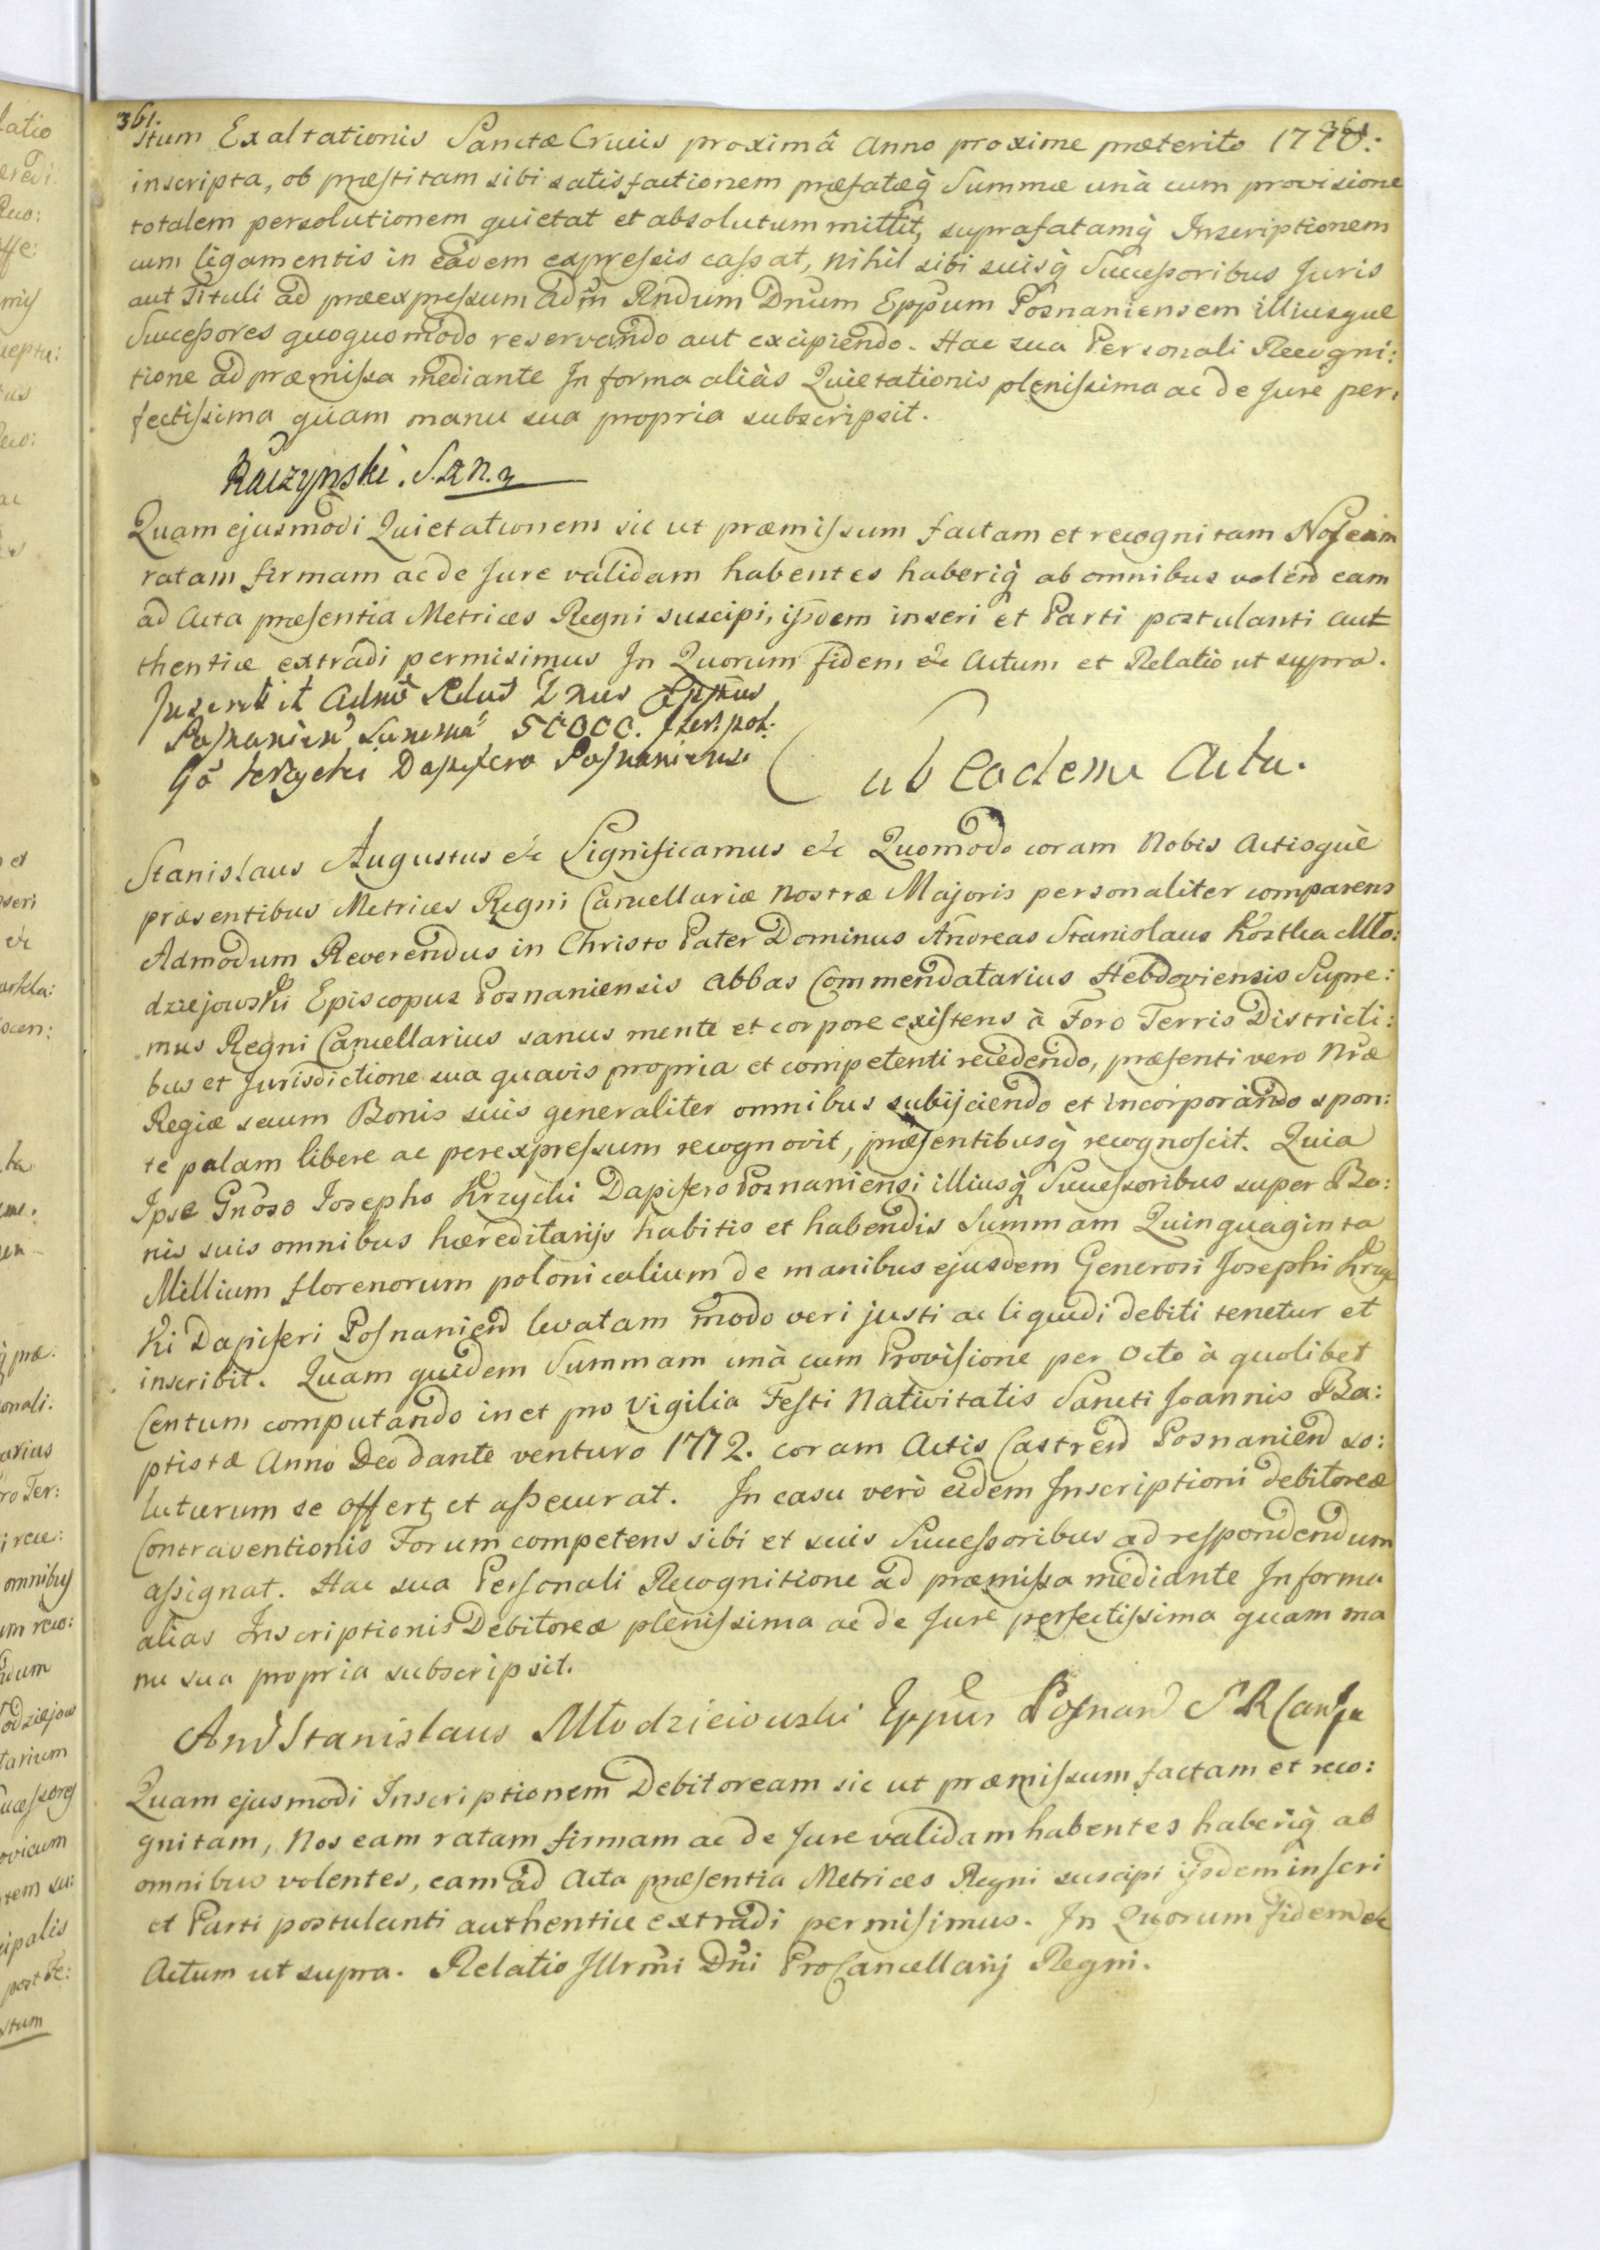 361.
361
stum Exaltationis Sanctæ Crucis proximâ Anno proxime præterito 1770.
inscripta, ob præstitam sibi satisfactionem præfatæq̀ Summæ unà cum provisione
totalem persolutionem quietat et absolutum mittit, suprafatamq̀ Inscriptionem
cum ligamentis in eadem expressis cassat, nihil sibi suisq̀ Successoribus Juris
aut Tituli ad præexpressum Adm̃ Rndum Dnum Eppum Posnaniensem illiusque
Successores quoquomodo reservando aut excipiendo. Hac sua Personali Recogni:
tione ad præmissa mediante In forma aliàs Quietationis plenissima ac de Jure per:
fectissima quam manu sua propria subscripsit.
Raczynski. S.R.N.
Quam ejusmodi Quietationem sic ut præmissum factam et recognitam Nos eam
ratam firmam ac de Jure validam habentes haberiq̀ ab omnibus volen̄ eam
ad Acta præsentia Metrices Regni suscipi, ijsdem inseri et Parti postulanti aut
thentice extradi permisimus In Quorum fidem &c Actum et Relatio ut supra.
Inscribit Adm̃ Rdus Dnus Eppus
Posnanien̄ Summã 50000. flor. pol.
Gõ Krzycki Dapifero Posnaniensi
Ab Eodem Actu.
Stanislaus Augustus &c Significamus &c Quomodo coram Nobis Actisquè
præsentibus Metrices Regni Cancellariæ Nostræ Majoris personaliter comparens
Admodum Reverendus in Christo Pater Dominus Andreas Stanislaus Kostka Mło:
dziejowski Episcopus Posnaniensis Abbas Commendatarius Hebdoviensis Supre:
mus Regni Cancellarius sanus mente et corpore existens à Foro Terris Districti:
bus et Jurisdictione sua quavis propria et competenti recedendo, præsenti vero Nræ
Regiæ seum Bonis suis generaliter omnibus subijciendo et incorporando spon:
te palam libere ac perexpressum recognovit, præsentibusq̀ recognoscit. Quia
Ipse Gnoso Josepho Krzycki Dapifero Posnaniensi illiusq̀ Successoribus super Bo:
nis suis omnibus hæreditarijs habitis et habendis Summam Quinquaginta
Millium florenorum polonicalium de manibus ejusdem Generosi Josephi Krzyc
ki Dapiferi Posnanien̄ levatam modo veri justi ac liquidi debiti tenetur et
inscribit. Quam quidem Summam unà cum Provisione per Octo à quolibet
Centum computando in et pro Vigilia Festi Nativitatis Sancti Joannis Ba:
ptistæ Anno Deo dante venturo 1772. coram Actis Castren̄ Posnanien̄ so:
luturum se offert et assecurat. In casu verò eidem Inscriptioni debitoreæ
Contraventionis Forum competens sibi et suis Successoribus ad respondendum
assignat. Hac sua Personali Recognitione ad præmissa mediante In forma
alias Inscriptionis Debitoreæ plenissima ac de Jure perfectissima quam ma
nu sua propria subscripsit.
And Stanislaus Młodzieiowski Eppus Posnan S R Can
Quam ejusmodi Inscriptionem Debitoream sic ut præmissum factam et reco:
gnitam, Nos eam ratam firmam ac de Jure validam habentes haberiq̀ ab
omnibus volentes, eam ad Acta præsentia Metrices Regni suscipi ijsdem inseri
et Parti postulanti authentice extradi permisimus. In Quorum fidem &c
Actum ut supra. Relatio Illrmi Dni ProCancellarij Regni.